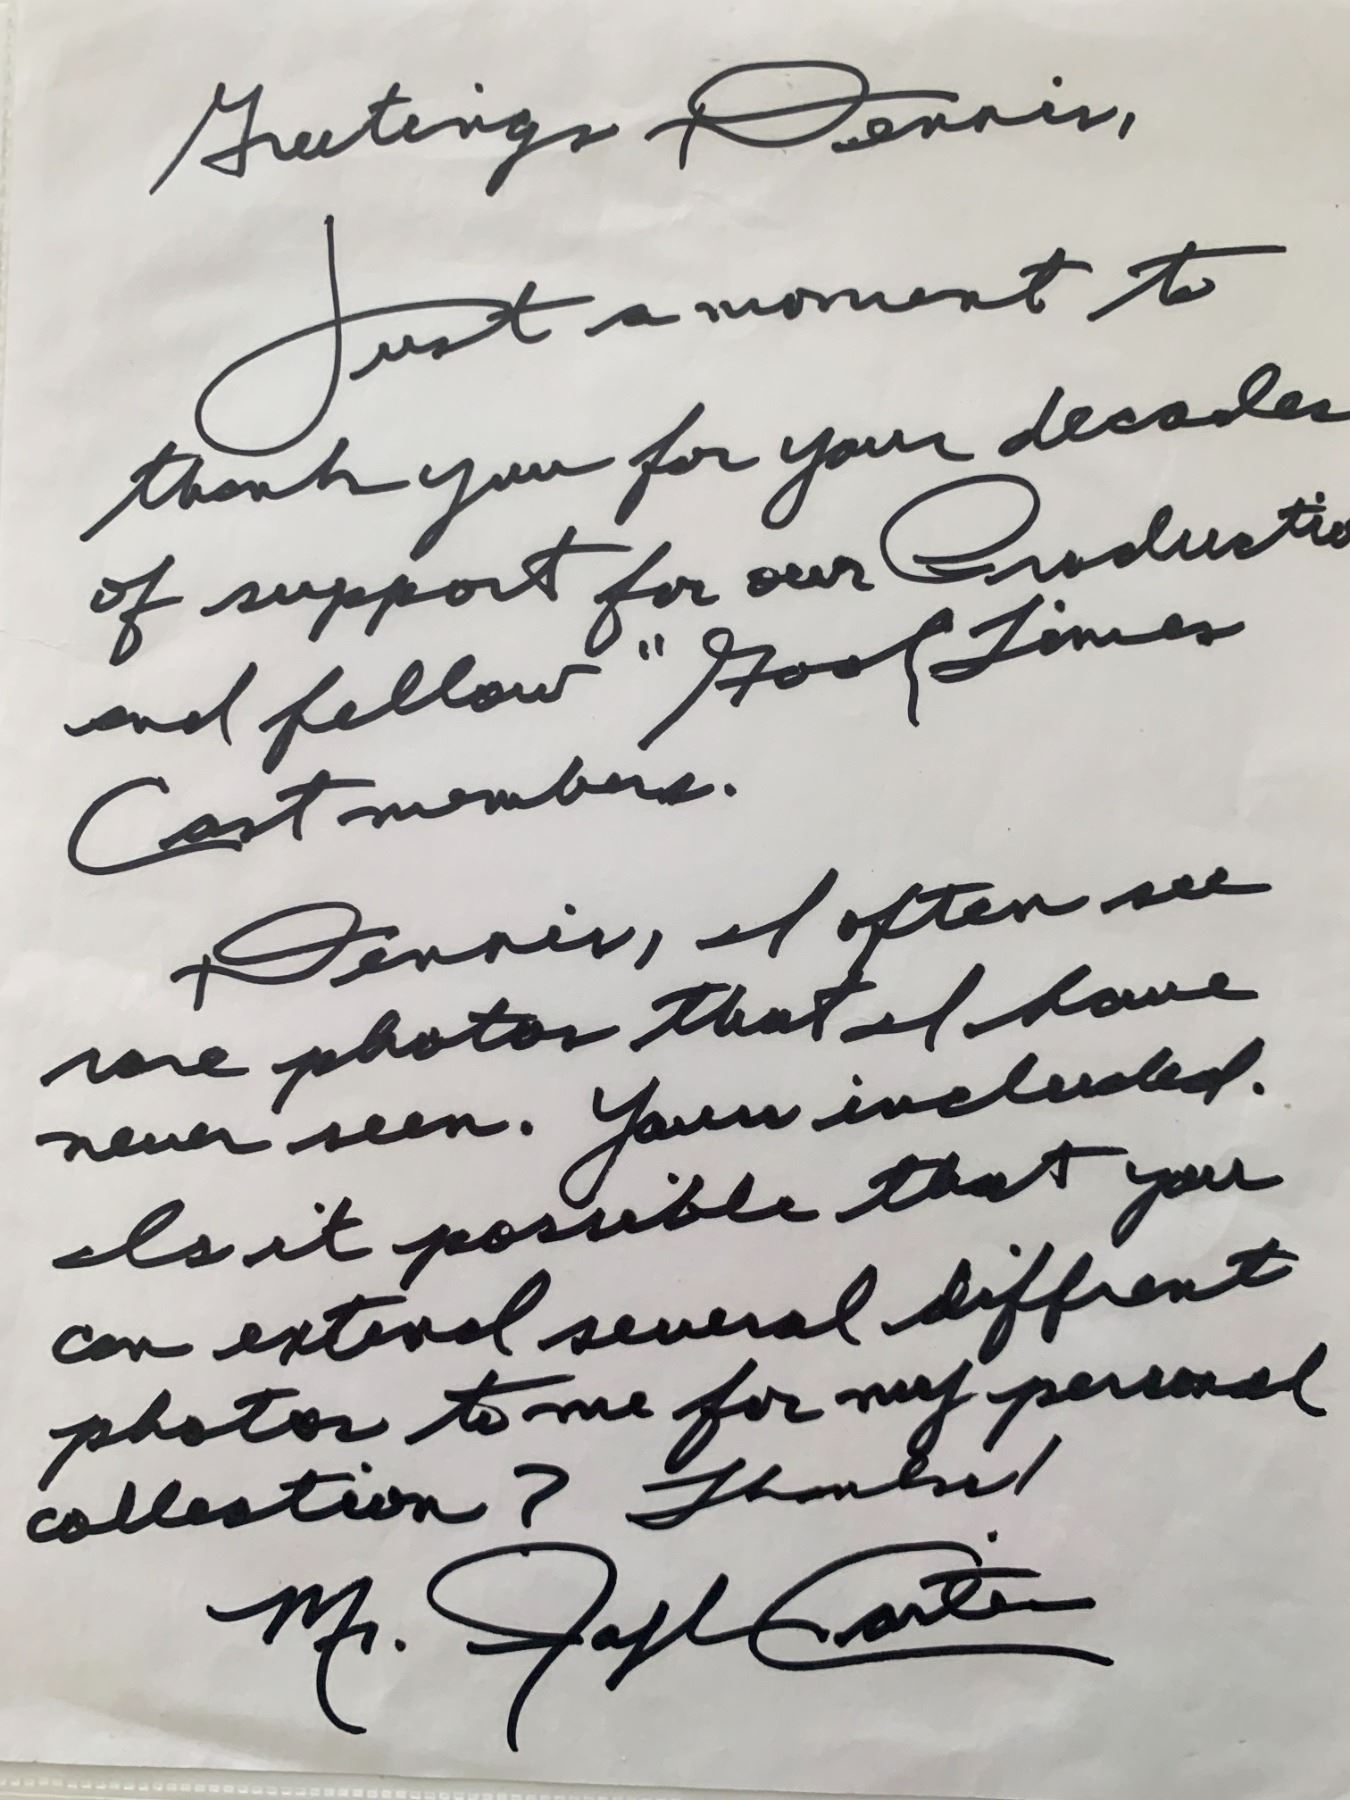 Greetings Dennis,
Just a moment to
thank you for your decades
of support for our Productio
and fellow "Good Times
Cast members.
Dennis, I often see
rare photos that I have
never seen. Yours included.
Is it possible that you
can extend several diffrent
photos to me for my personal
collection? Thanks!
Mr. Carter